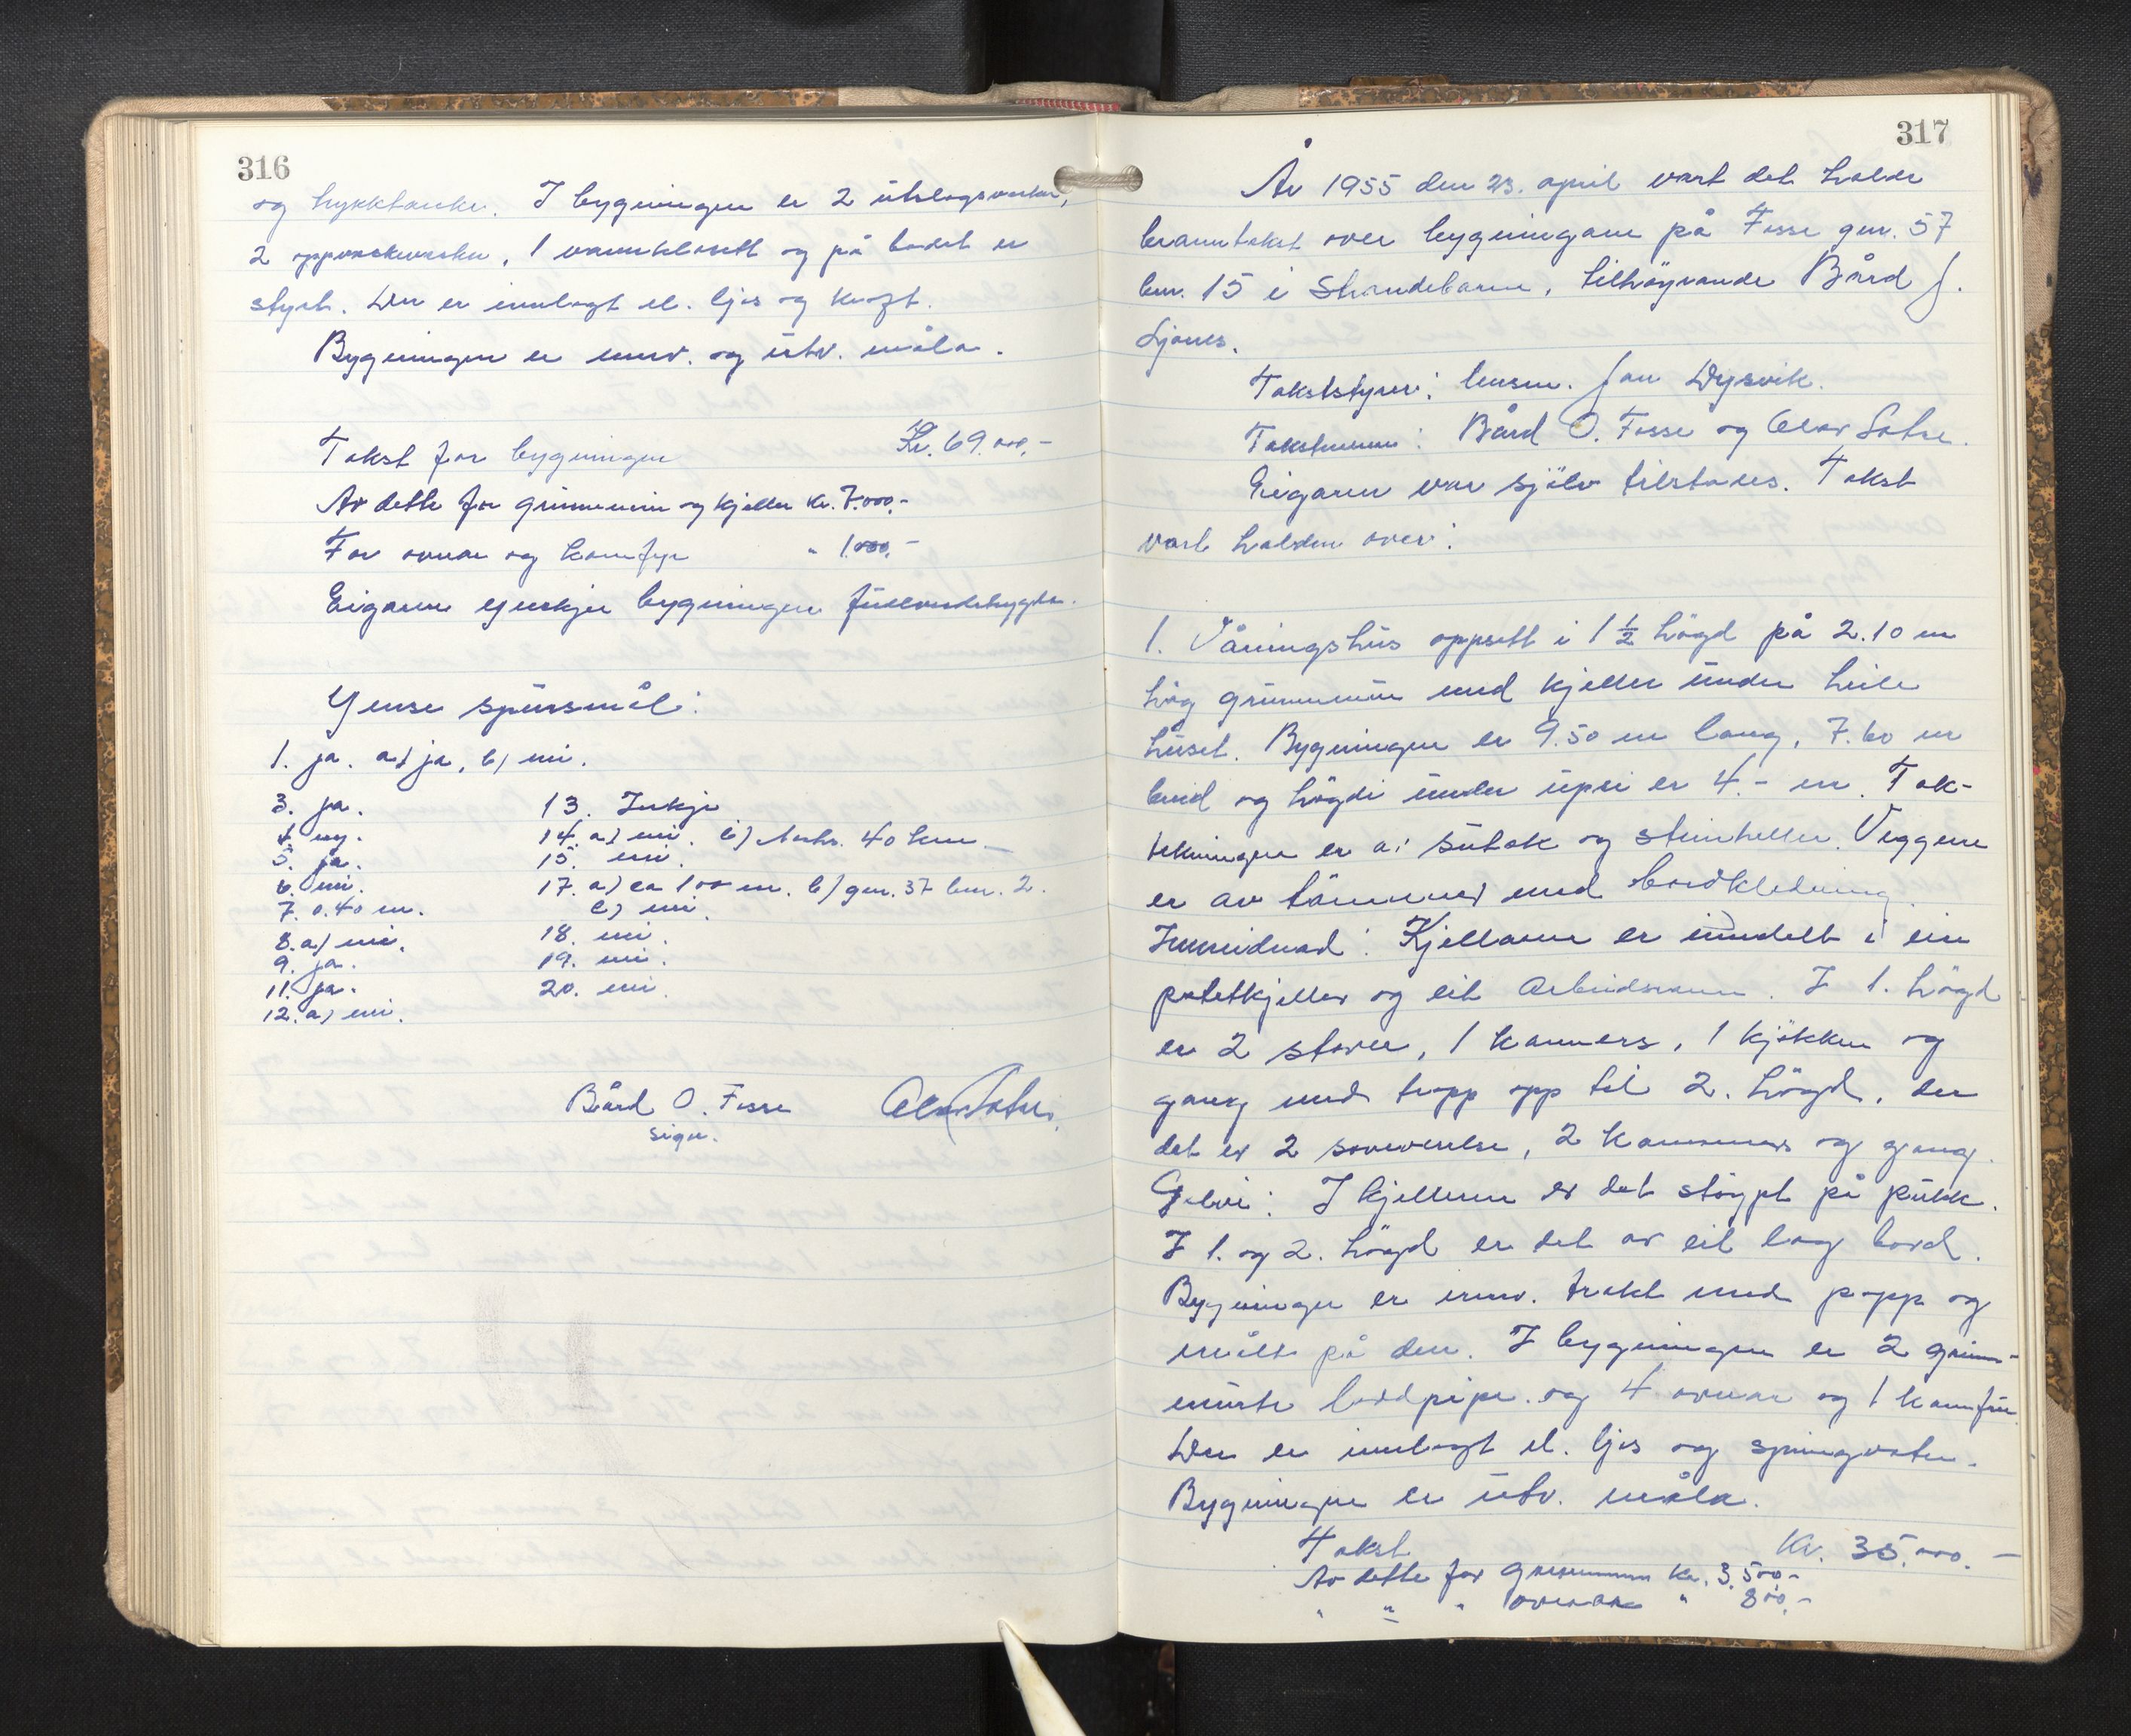 316
og trykktanke. I bygningen er 2 utslagsvaskar,
2 oppvaskvaskar, 1 vannklosett og på badet er
styrt. Der er innlagt el. ljos og kraft.
Bygningen er innv. og utv. måla.
Takst for bygningen Kr. 69.000,-
Av dette for grunnmur og kjeller kr. 7.000,-
For ovnar og komfyr " 1.000,-
Eigaren ynskjer bygningen fullverdetrygda.
Ymse spursmål:
1. ja. a) ja, b) nei.
3. ja.
4. ny.
5. ja.
6. nei.
7. 0.40 m.
8. a) nei.
9. ja.
11. ja.
12. a) nei.
13. Inkje
14. a) nei. b) 40 km.
15. nei.
17. a) ca 100 m. b) gnr. 37 bnr. 2.
c) nei.
18. nei.
19. nei.
20. nei.
Bård O. Fosse
sign.
317
År 1955 den 23. april vart det halde
branntakst over bygningane på Fosse gnr. 57
bnr. 15 i Strandebarm, tilhøyrande Bård J.
Ljones.
Takststyrer: lensm. Jon Dysvik.
Takstmenn: Bård O. Fosse og Olav Satre.
Eigaren var sjølv tilstades. Takst
vart halden over:
1. Våningshus oppsett i 1 1/2 högd på 2.10 m
høg grunnmur med kjeller under heile
huset. Bygningen er 9.50 m lang, 7.60 m
breid og högdi under upsi er 4.- m. Tak-
tekningen er av sutak og steinheller. Veggene
er av tömmer med bordkledning.
Innreidnad: Kjellaren er inndelt i ein
potetkjeller og eit arbeidsrom. I 1. högd
er 2 stover, 1 kammers, 1 kjökken og
gang med trapp opp til 2. högd, der
det er 2 soveverelse, 2 kammers og gang.
Golvi: I kjelleren er det stöypt på pukk.
I 1. og 2. högd er det av eit lag bord.
Bygningen er innv. trekt med papp og
målt på den. I bygningen er 2 grunn-
murte bordpipe. og 4 ovnar og 1 komfyr
Der er innlagt el. ljos og springvatn.
Bygningen er utv. måla.
Takst Kr. 35.000.-
Av dette for grunnmuren kr. 3.500,-
" " " ovnane " 800,-